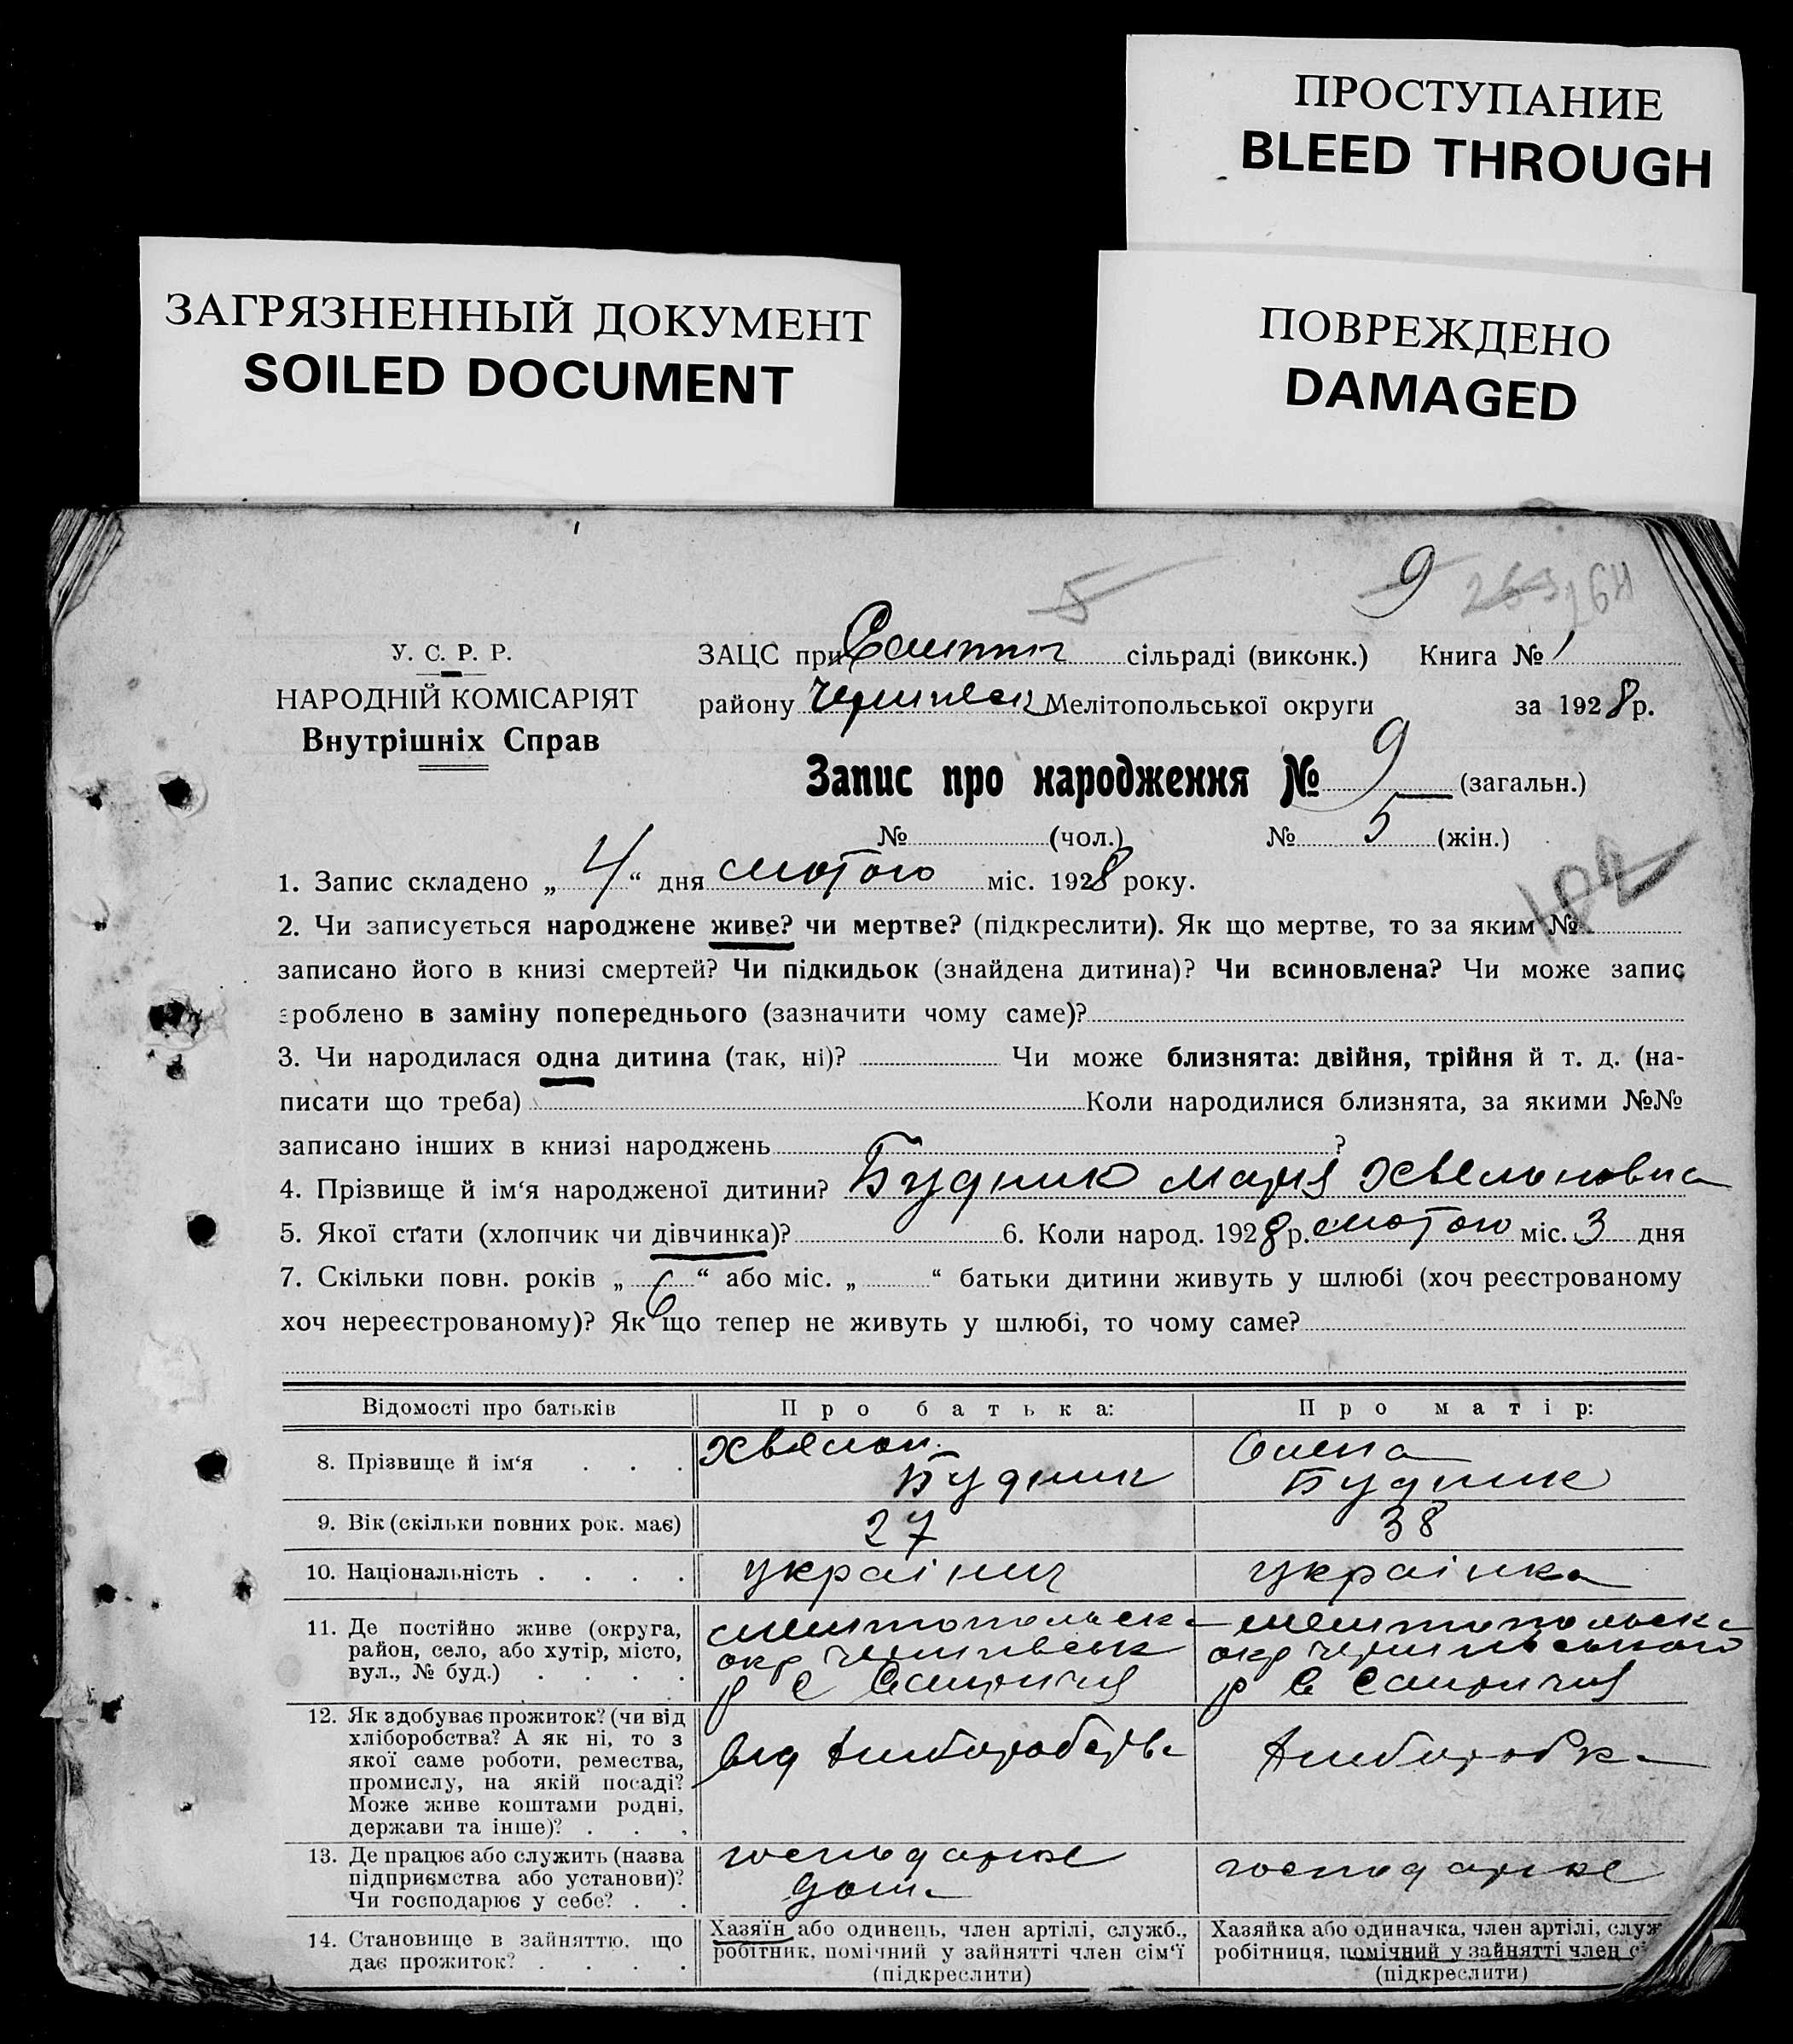 ПРОСТУПАНИЕ
BLEED THROUGH
ЗАГРЯЗНЕННЫЙ ДОКУМЕНТ
SOILED DOCUMENT
ПОВРЕЖДЕНО
DAMAGED
5 9
У. С. Р. Р.
НАРОДНІЙ КОМІСАРІЯТ
Внутрішніх Справ
ЗАЦС при сільраді (виконк.) Книга № 1
району Мелітопольської округи за 1928 р.
Запис про народження № 9 (загальн.)
№ (чол.) № 5 (жін.)
1. Запис складено „ 4 “ дня лютого міс. 1928 року.
2. Чи записується народжене живе? чи мертве? (підкреслити). Як що мертве, то за яким №
записано його в книзі смертей? Чи підкидьок (знайдена дитина)? Чи всиновлена? Чи може запис
зроблено в заміну попереднього (зазначити чому саме)?
3. Чи народилася одна дитина (так, ні)? Чи може близнята: двійня, трійня й т. д. (на-
писати що треба) Коли народилися близнята, за якими №№
записано інших в книзі народжень ?
4. Прізвище й ім‘я народженої дитини? Будник Марія
5. Якої стати (хлопчик чи дівчинка)? 6. Коли народ. 1928 р. лютого міс. 3 дня
7. Скільки повн. років „ 6 “ або міс. „ “ батьки дитини живуть у шлюбі (хоч реєстрованому
хоч нереєстрованому)? Як що тепер не живуть у шлюбі, то чому саме?
Відомості про батьків Про батька: Про матір:
8. Прізвище й ім‘я . . . Хвялон Будник Олена Будник
9. Вік (скільки повних рок. має) 27 38
10. Національність . . . . українец українка
11. Де постійно живе (округа,
район, село, або хутір, місто,
вул., № буд.) . . . .
мелитопольск
окр
р с
мелитопольск
окр
р с
12. Як здобуває прожиток? (чи від
хліборобства? А як ні, то з
якої саме роботи, ремества,
промислу, на якій посаді?
Може живе коштами родні,
держави та інше)? . . .
від хлиборобства
хлиборобка
13. Де працює або служить (назва
підприємства або установи)?
Чи господарює у себе? . .
господарює
дома
господарює
14. Становище в зайняттю, що
дає прожиток? . . . .
Хазяїн або одинець, член артілі, служб.,
робітник, помічний у зайнятті член сім‘ї
(підкреслити)
Хазяйка або одиначка, член артілі, служ
робітниця, помічний у зайнятті член с
(підкреслити)